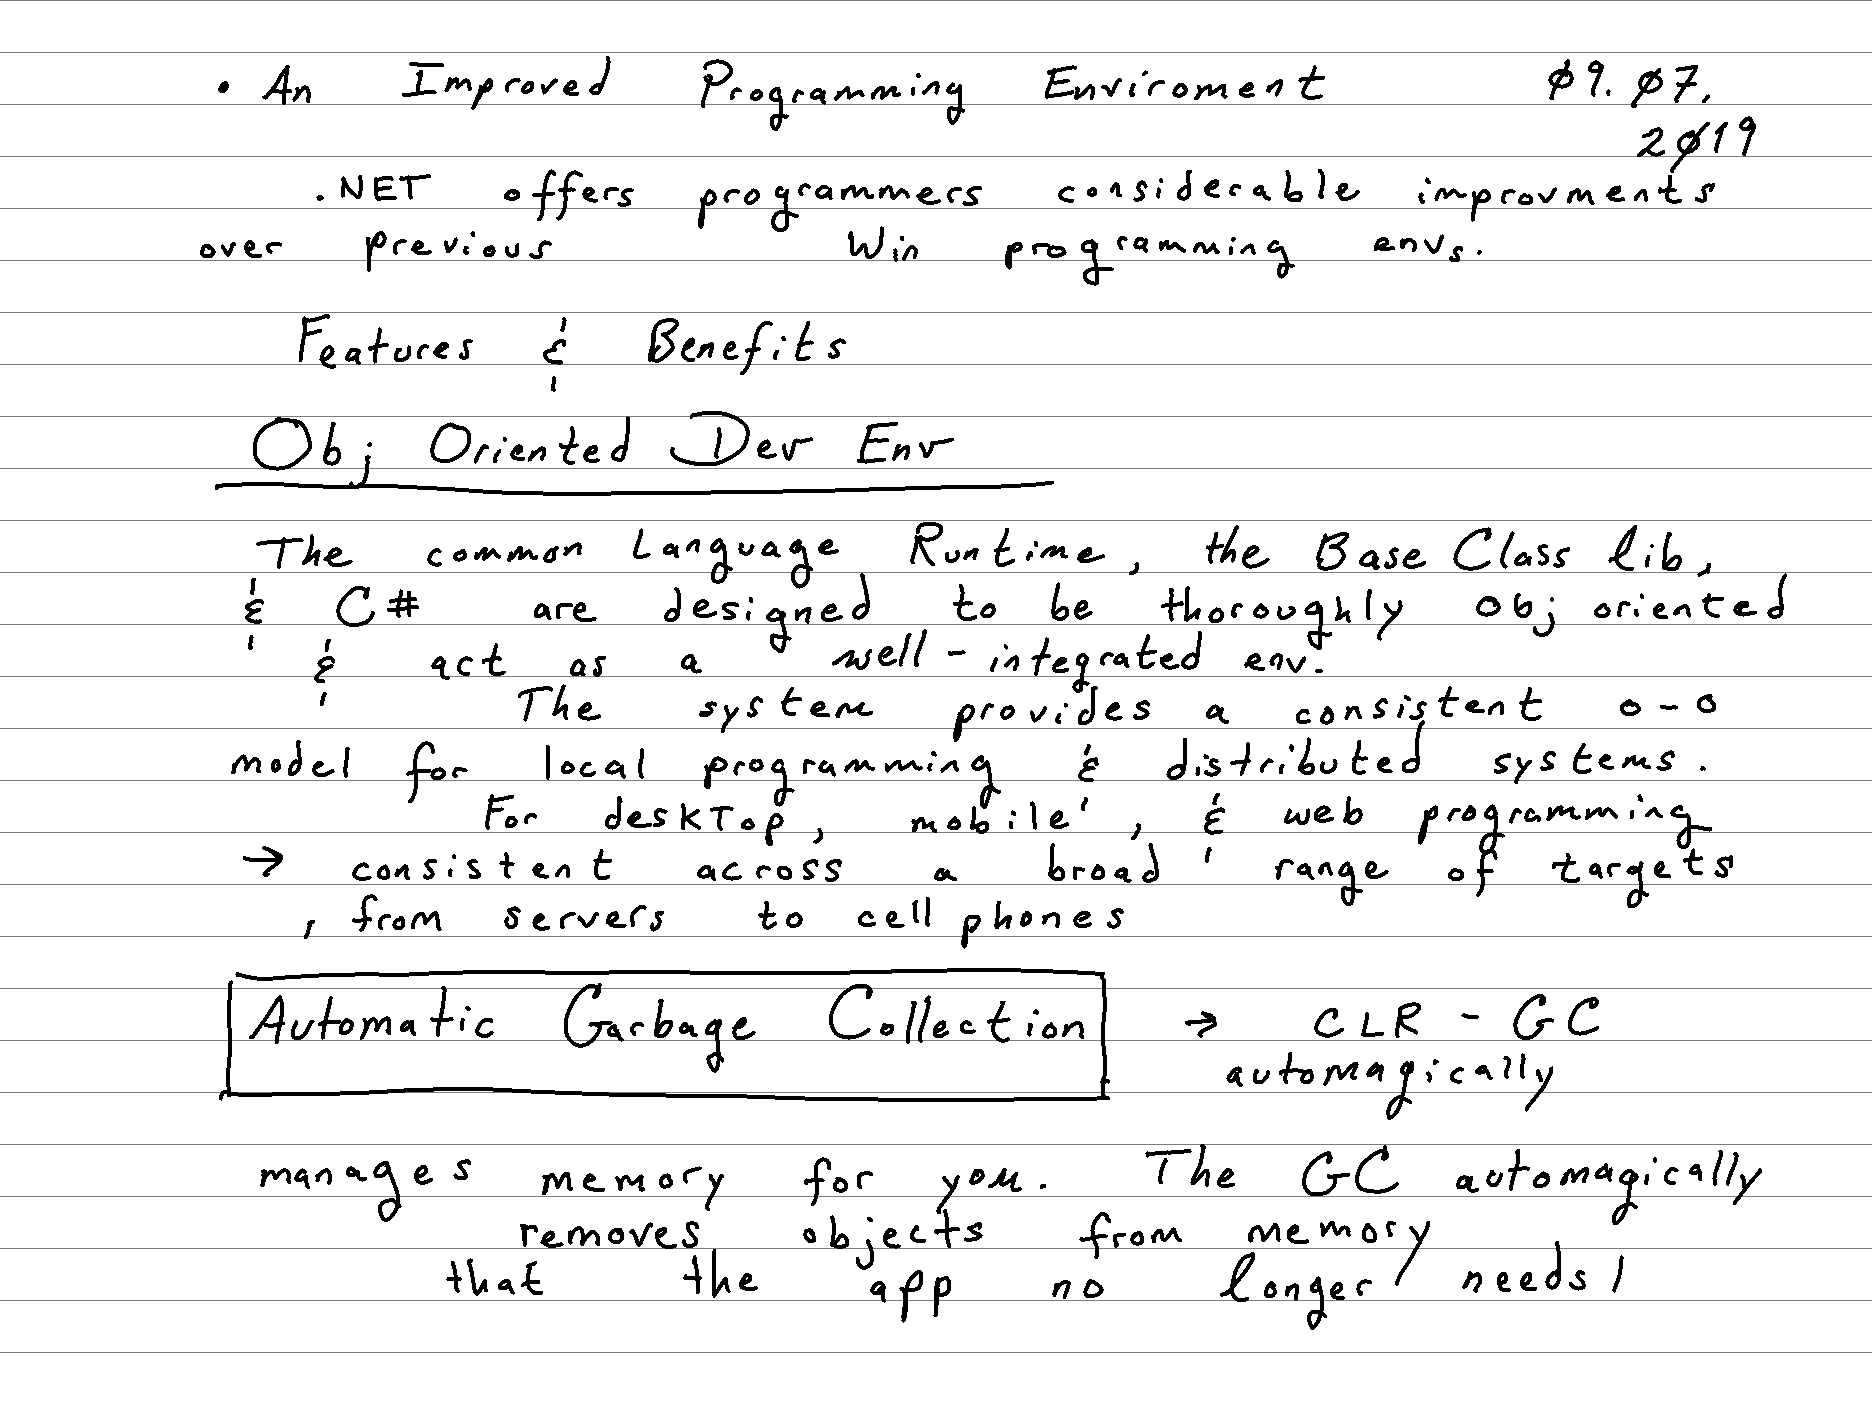 • An Improved Programming Enviroment 09.07,
2019
.NET offers programmers considerable improvments
over previous Win programming envs.
Features & Benefits
Obj Oriented Dev Env
The common Language Runtime, the Base Class lib,
& C# are designed to be thoroughly obj oriented
& act as a well-integrated env.
The system provides a consistent o-o
model for local programming & distributed systems.
For deskTop, mobile, & web programming
→ consistent across a broad range of targets
, from servers to cell phones
Automatic Garbage Collection → CLR - GC
automagically
manages memory for you. The GC automagically
removes objects from memory
that the app no longer needs!